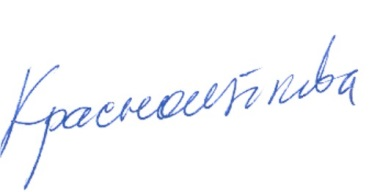 Красноштанова